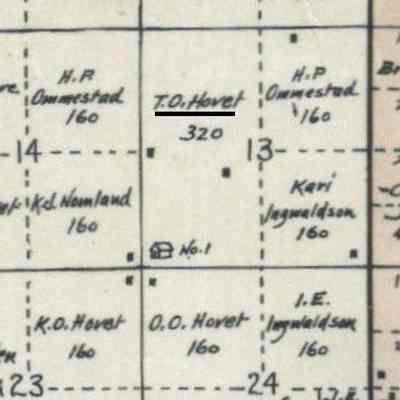 H.P.
Ommestad
160
T.O. Hovet
320
H.P
Ommestad
160
14
13
K.J. Nomland
160
Kari
Ingwaldson
160
No. 1
K.O. Hovet
160
O.O. Hovet
160
I.E.
Ingwaldson
160
23
24